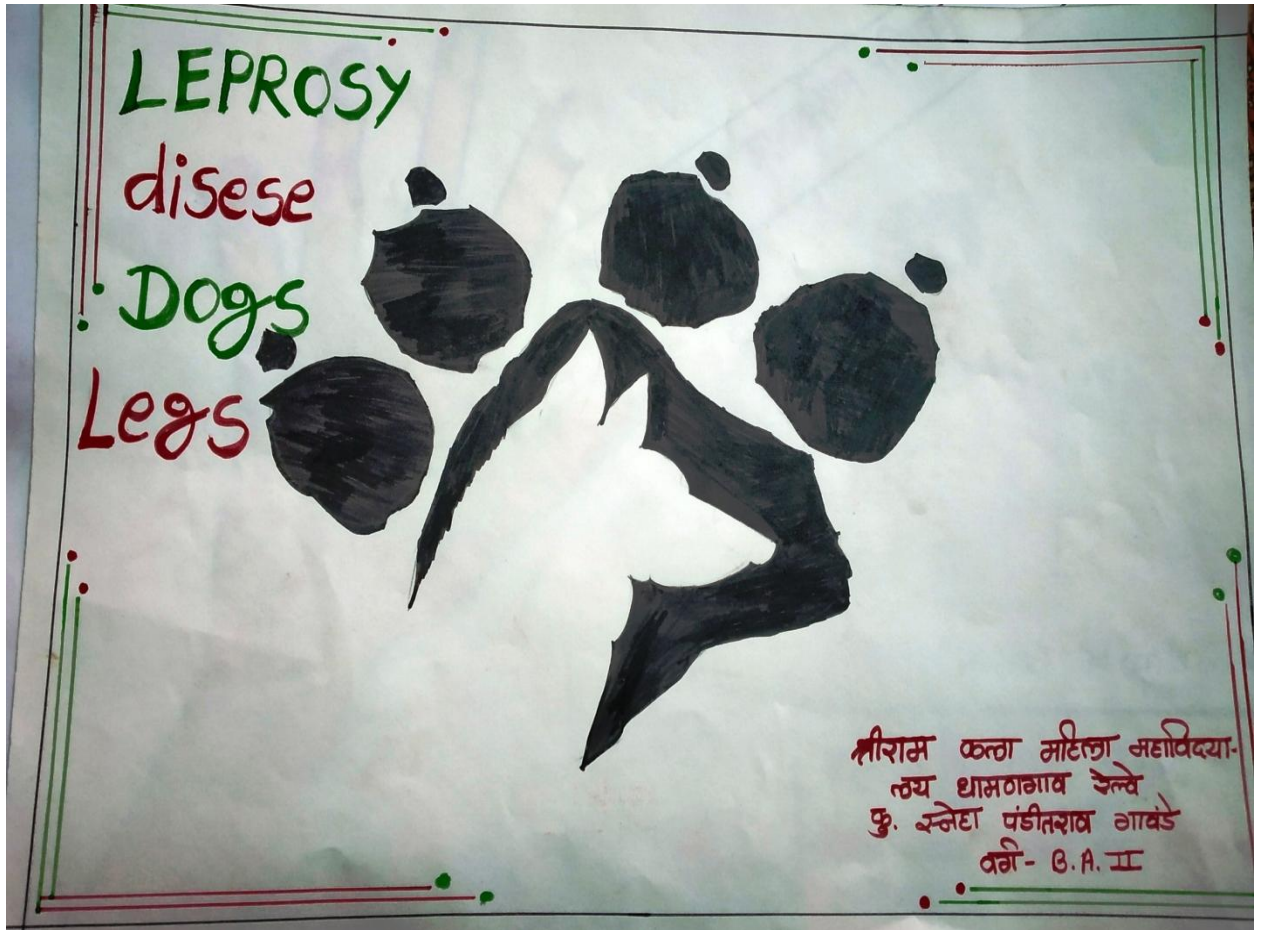 LEPROSY
disese
Dogs
Legs
श्रीराम कला महिला महाविदया-
लय धामणगाव रेल्वे
कु. स्नेहा पंडीतराव गावंडे
वर्ग - B.A. II